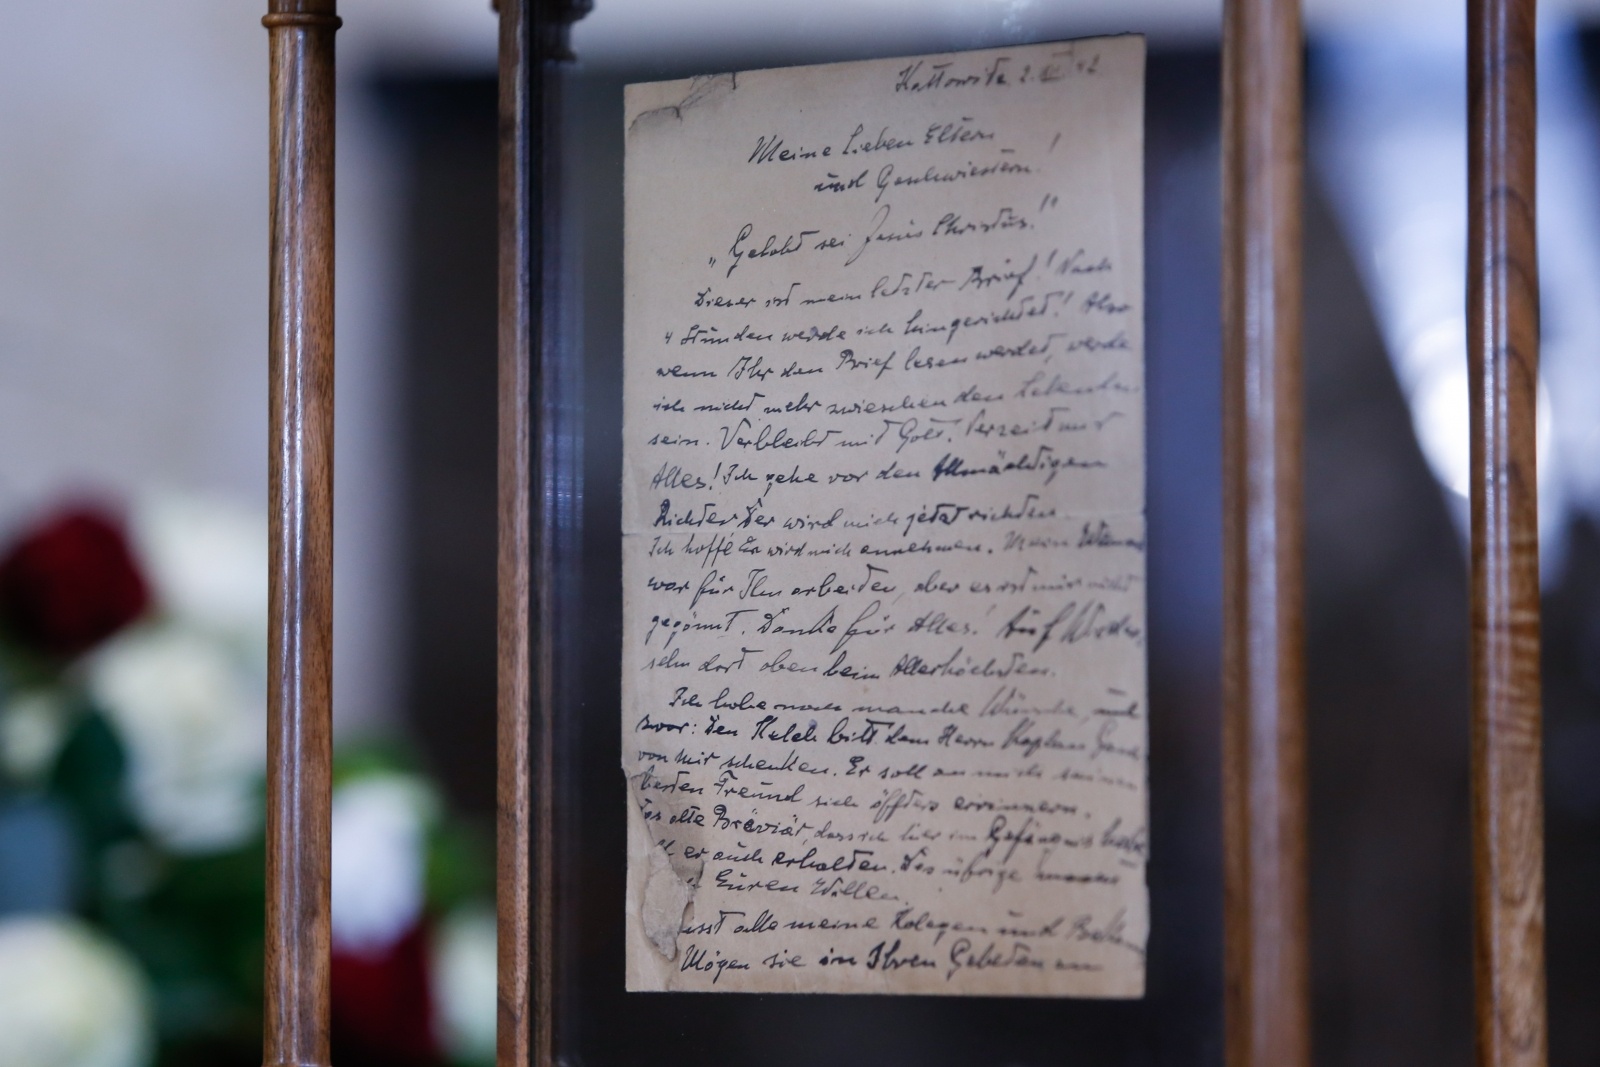 Kattowitz 2. XII 42
Meine Lieben Eltern
und Geschwiestern!
„Gelobt sei Jesus Christus!"
Dieser ist mein letzter Brief! Nach
4 Stunden werde ich hingerichtet! Also
wenn Ihr den Brief lesen werdet, werde
ich nicht mehr zwieschen den Lebenden
sein. Verbleibt mit Gott! Verzeit mir
Alles! Ich gehe vor den Allmächtigen
Richter Der wird mich jetzt richten.
Ich hoffe Er wird mich annehmen. Mein
war für Ihn arbeiten, aber es ist mir nicht
gegönnt. Danke für Alles! Auf Wieder-
sehn dort oben beim Allerhöchsten.
Ich habe noch manche Wünsche, und
zwar: Den Kelch bitt dem Herrn Kaplan
von mir schenken. Er soll an mich seinen
besten Freund sich öffters erinnern.
Das alte Breviär, dass ich hier im Gefängnis habe
er auch erhalten. Das übrige
Euren Willen.
alle meine Kolegen und
Mögen sie in Ihren Gebeten an